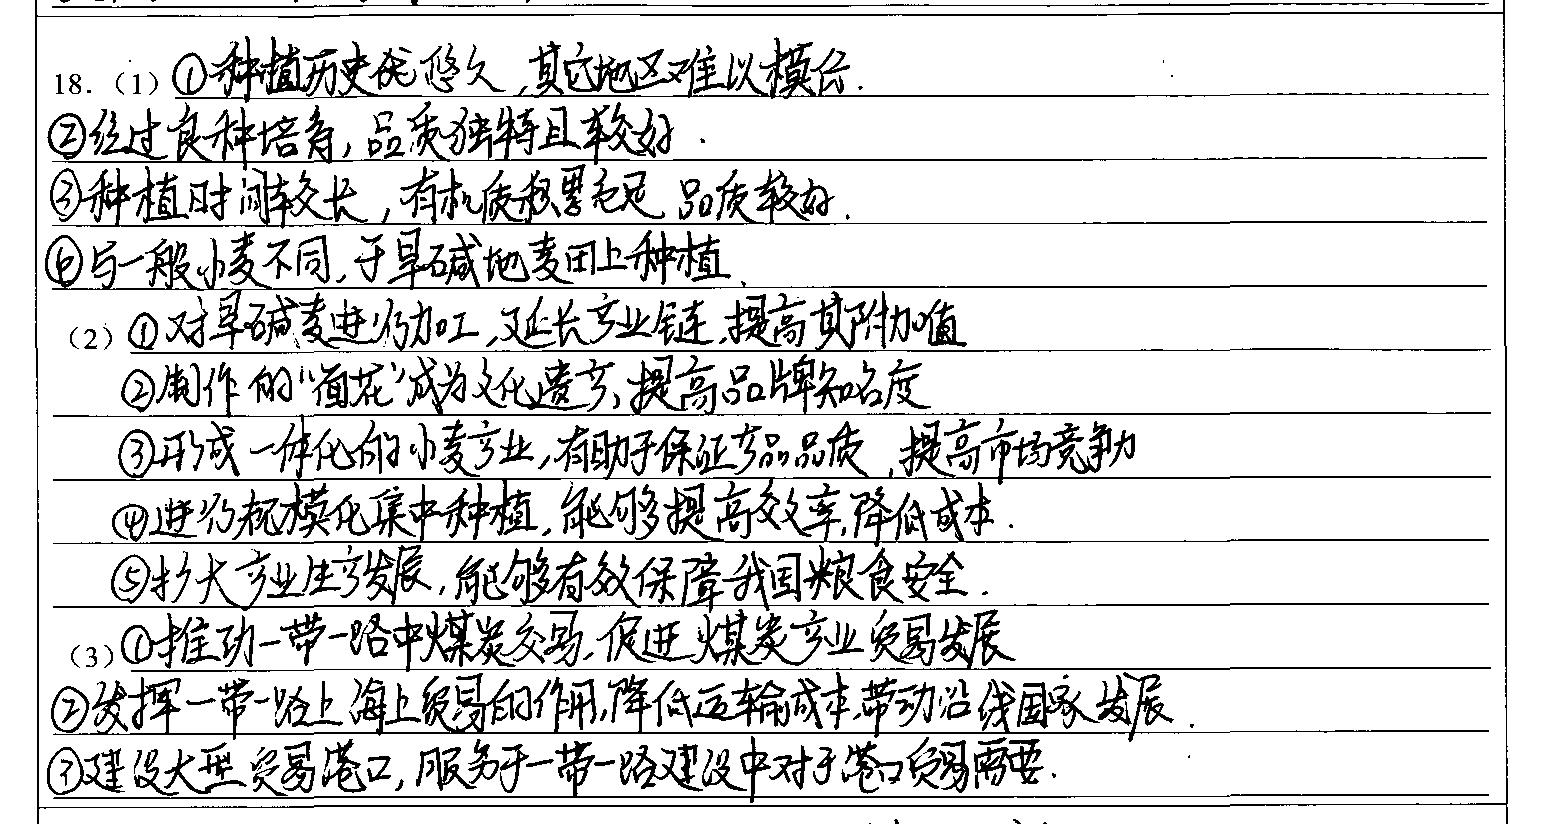 18.（1）①种植历史优悠久,其它地区难以模仿.
②经过良种培育,品质独特且较好.
③种植时间较长,有机质积累充足,品质较好.
④与一般小麦不同,于旱碱地麦田上种植.
（2）①对旱碱麦进行加工,延长产业链,提高其附加值
②制作的“面花”成为文化遗产,提高品牌知名度
③形成一体化的小麦产业,有助于保证产品品质,提高市场竞争力
④进行规模化集中种植,能够提高效率,降低成本.
⑤扩大产业生产发展,能够有效保障我国粮食安全.
（3）①推动一带一路中煤炭交易,促进煤炭产业贸易发展
②发挥一带一路上海上贸易的作用,降低运输成本,带动沿线国家发展.
③建设大型贸易港口,服务于一带一路建设中对于港口贸易需要.